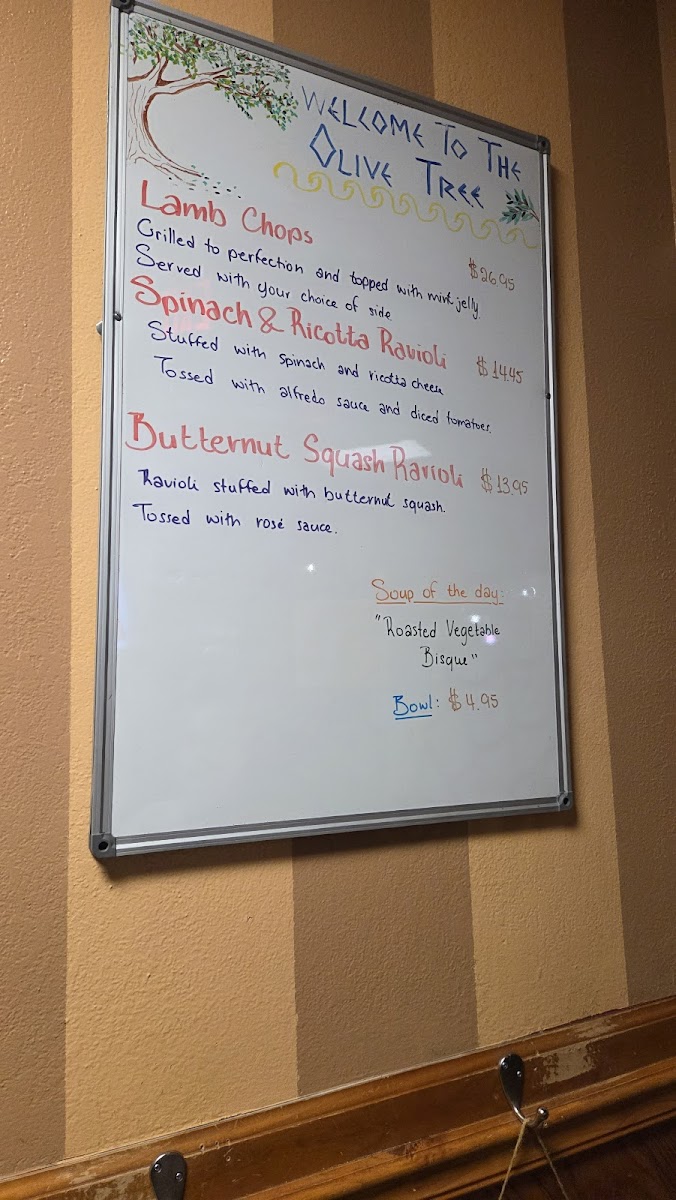 WELCOME TO THE
OLIVE TREE
Lamb Chops
Grilled to perfection and topped with mint jelly. $26.95
Served with your choice of side
Spinach & Ricotta Ravioli $14.45
Stuffed with spinach and ricotta cheese
Tossed with alfredo sauce and diced tomatoes.
Butternut Squash Ravioli $13.95
Ravioli stuffed with butternut squash.
Tossed with rosé sauce.
Soup of the day:
"Roasted Vegetable
Bisque"
Bowl: $4.95